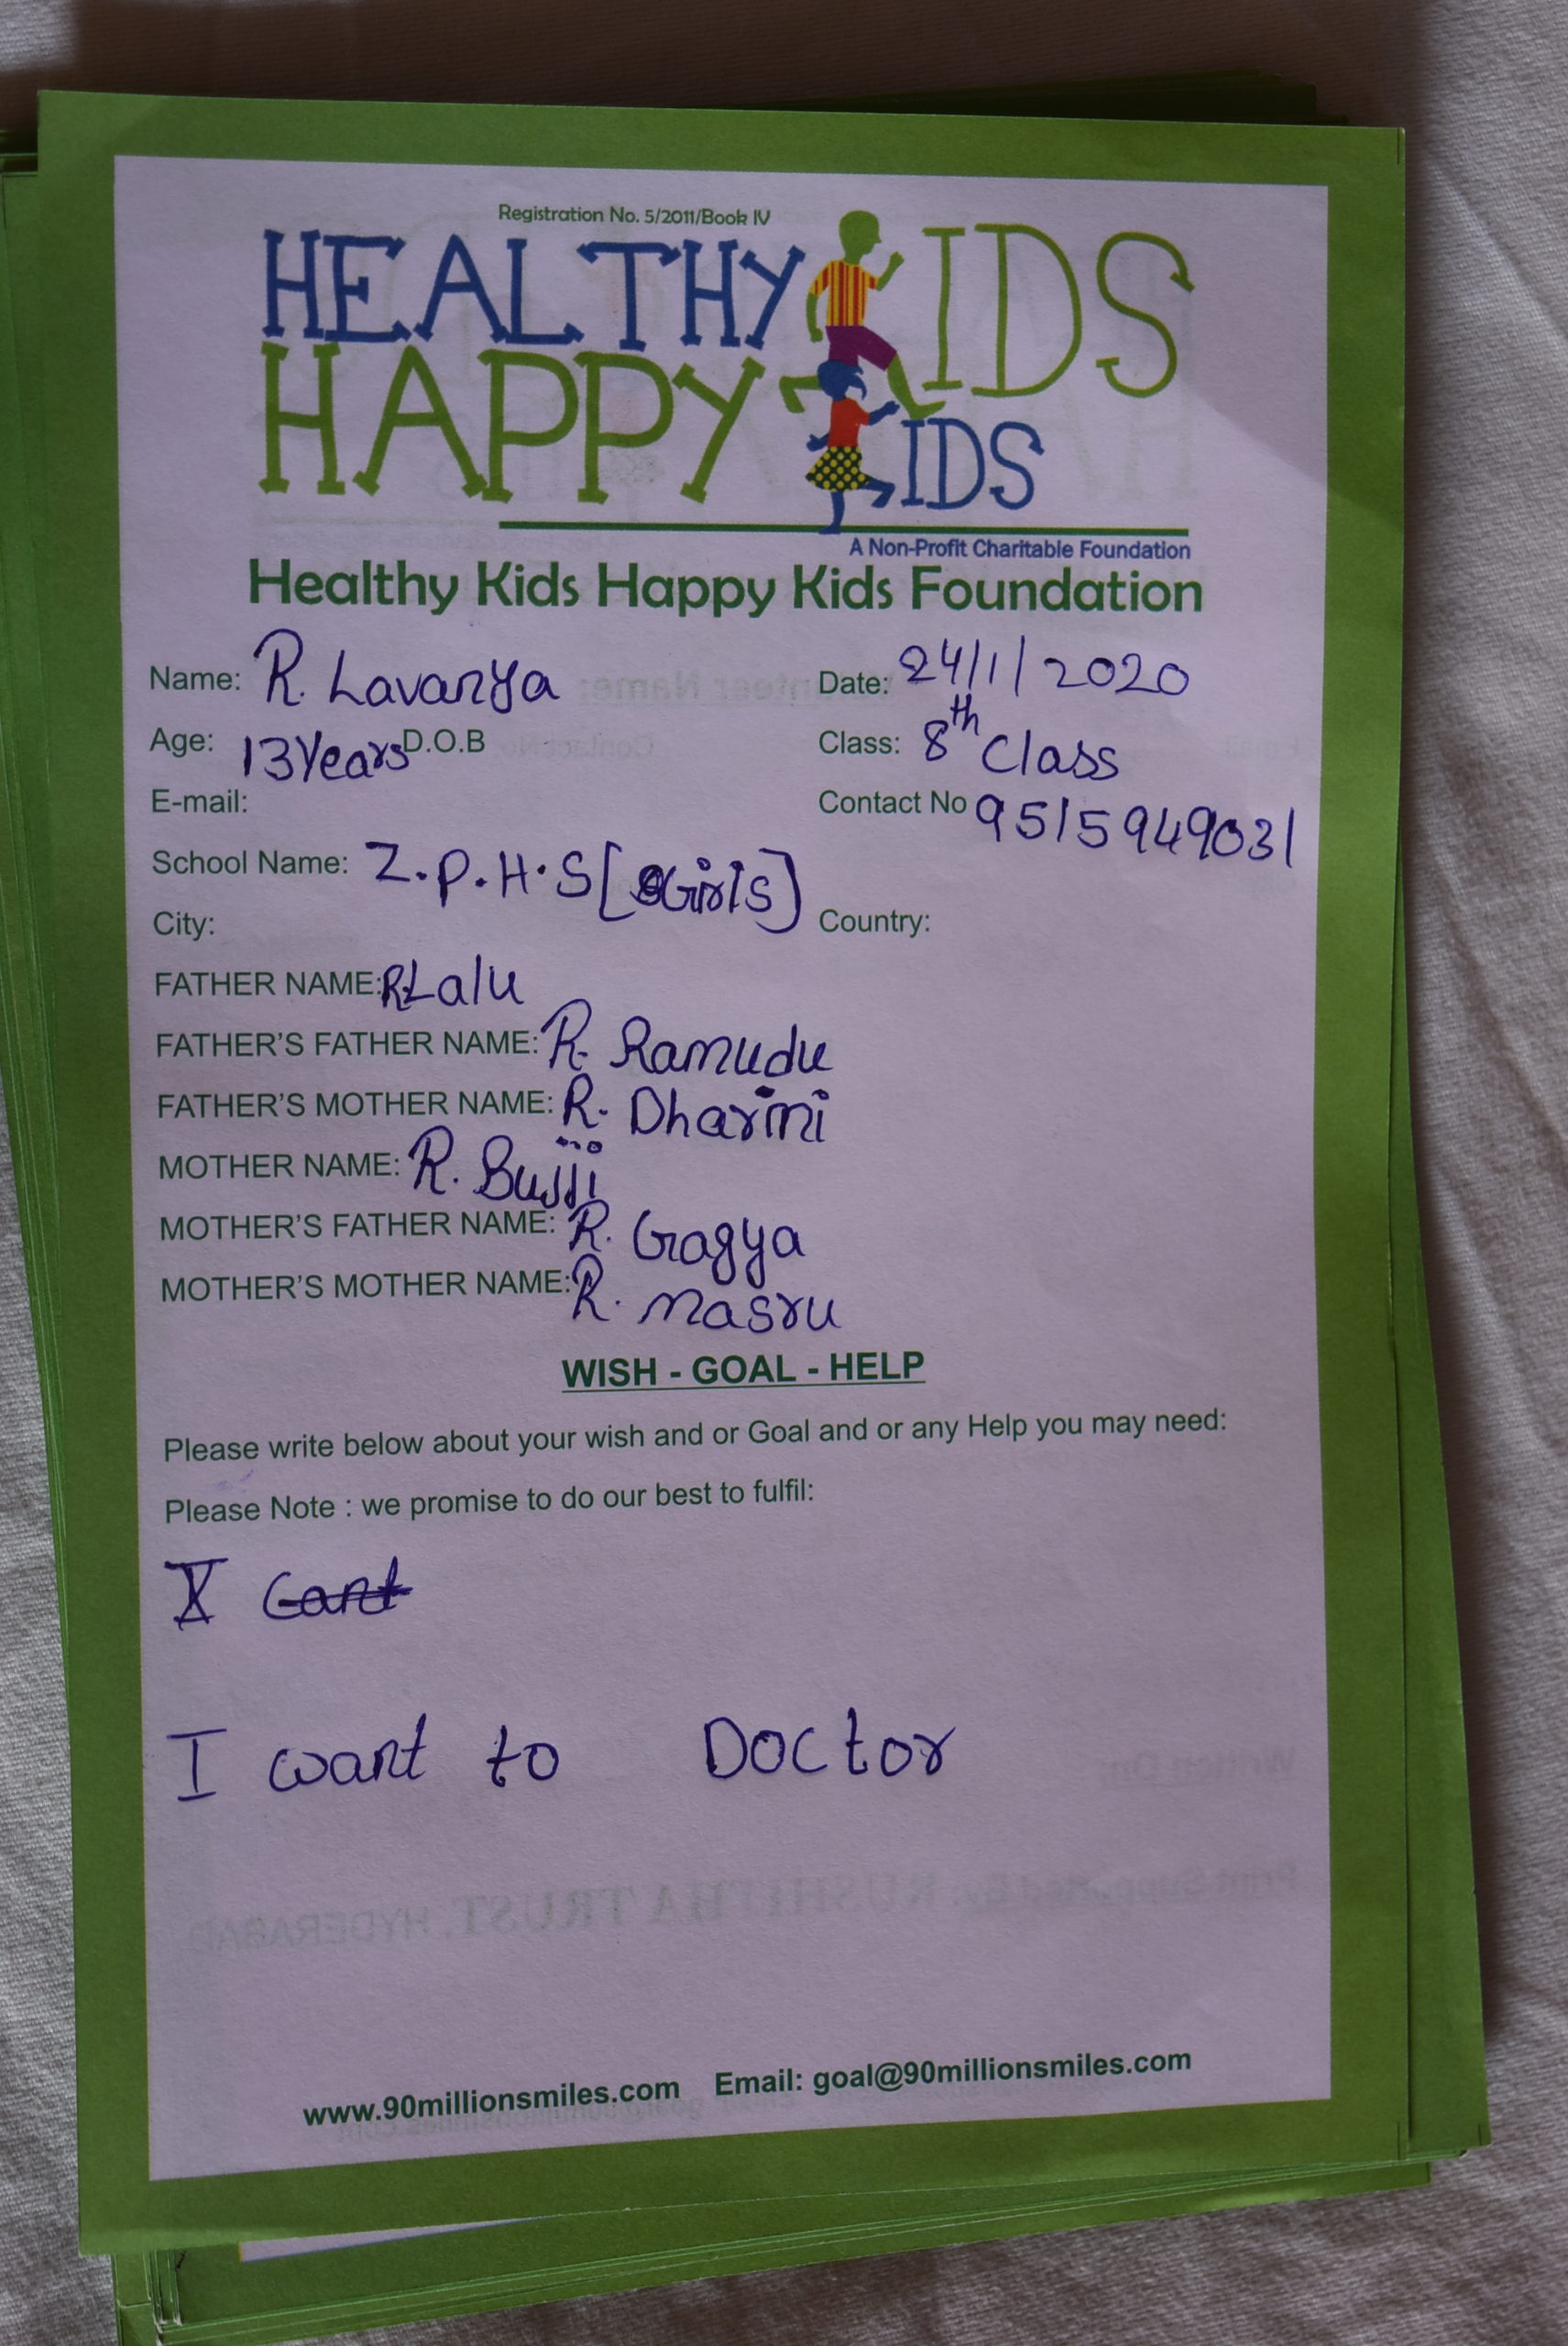 Registration No. 5/2011/Book IV
HEALTHY KIDS
HAPPY KIDS
A Non-Profit Charitable Foundation
Healthy Kids Happy Kids Foundation
Name: R. Lavanya Date: 24/1/2020
Age: 13 Years D.O.B Class: 8th Class
E-mail: Contact No 9515949031
School Name: Z.P.H.S [Girls]
City: Country:
FATHER NAME: R Lalu
FATHER'S FATHER NAME: R. Ramudu
FATHER'S MOTHER NAME: R. Dharmi
MOTHER NAME: R. Bujji
MOTHER'S FATHER NAME: R. Gagya
MOTHER'S MOTHER NAME: R. masru
WISH - GOAL - HELP
Please write below about your wish and or Goal and or any Help you may need:
Please Note : we promise to do our best to fulfil:
I want to Doctor
www.90millionsmiles.com Email: goal@90millionsmiles.com